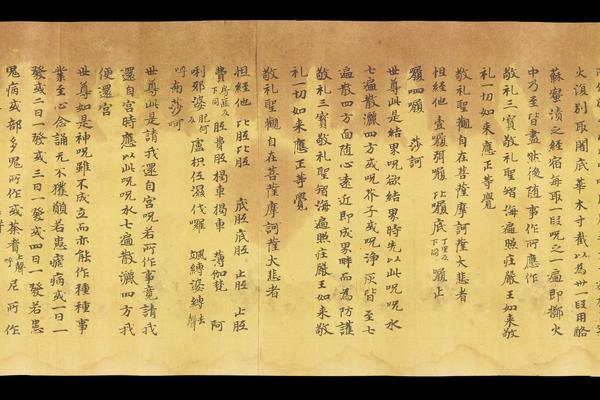 火後別取閼底華木寸截以為卅一段用酪
蘇蜜漬之経宿每取一段呪之一遍即擲火
中乃至皆盡然後隨事作所應作
敬礼三寶敬礼聖智海遍照莊嚴王如来敬
礼一切如来應正等覺
敬礼聖觀自在菩薩摩訶薩大悲者
怛経他 壹㘑弭㘑 比㘑底 㘑止
㘑呬㘑 莎訶
世尊此是結果呪欲結果時先以此呪呪水
七遍散灑四方或呪芥子或呪淨灰皆至七
遍散四方面随心遠近即成果畔而為防護
敬礼三寶敬礼聖智海遍照莊嚴王如来敬
礼一切如来應正等覺
敬礼聖觀自在菩薩摩訶薩大悲者
怛経他 比胵比胵 底胵底胵 止胵 止胵
費 胵費胵 揭車揭車 薄伽梵 阿
唎耶婆 盧枳伍濕伐囉 颯縛婆縛
南莎訶
世尊此是請我還自宫呪若所作事竟請我
還自宫時應以此呪呪水七遍散灑四方我
便還宫
世尊如是神呪雖不成立而亦能作種種事
業至心念誦无不獲願若患瘧病或一日一
發或二日一發或三日一發或四日一發若患
鬼病或部多鬼所作或荼耆 尼所作